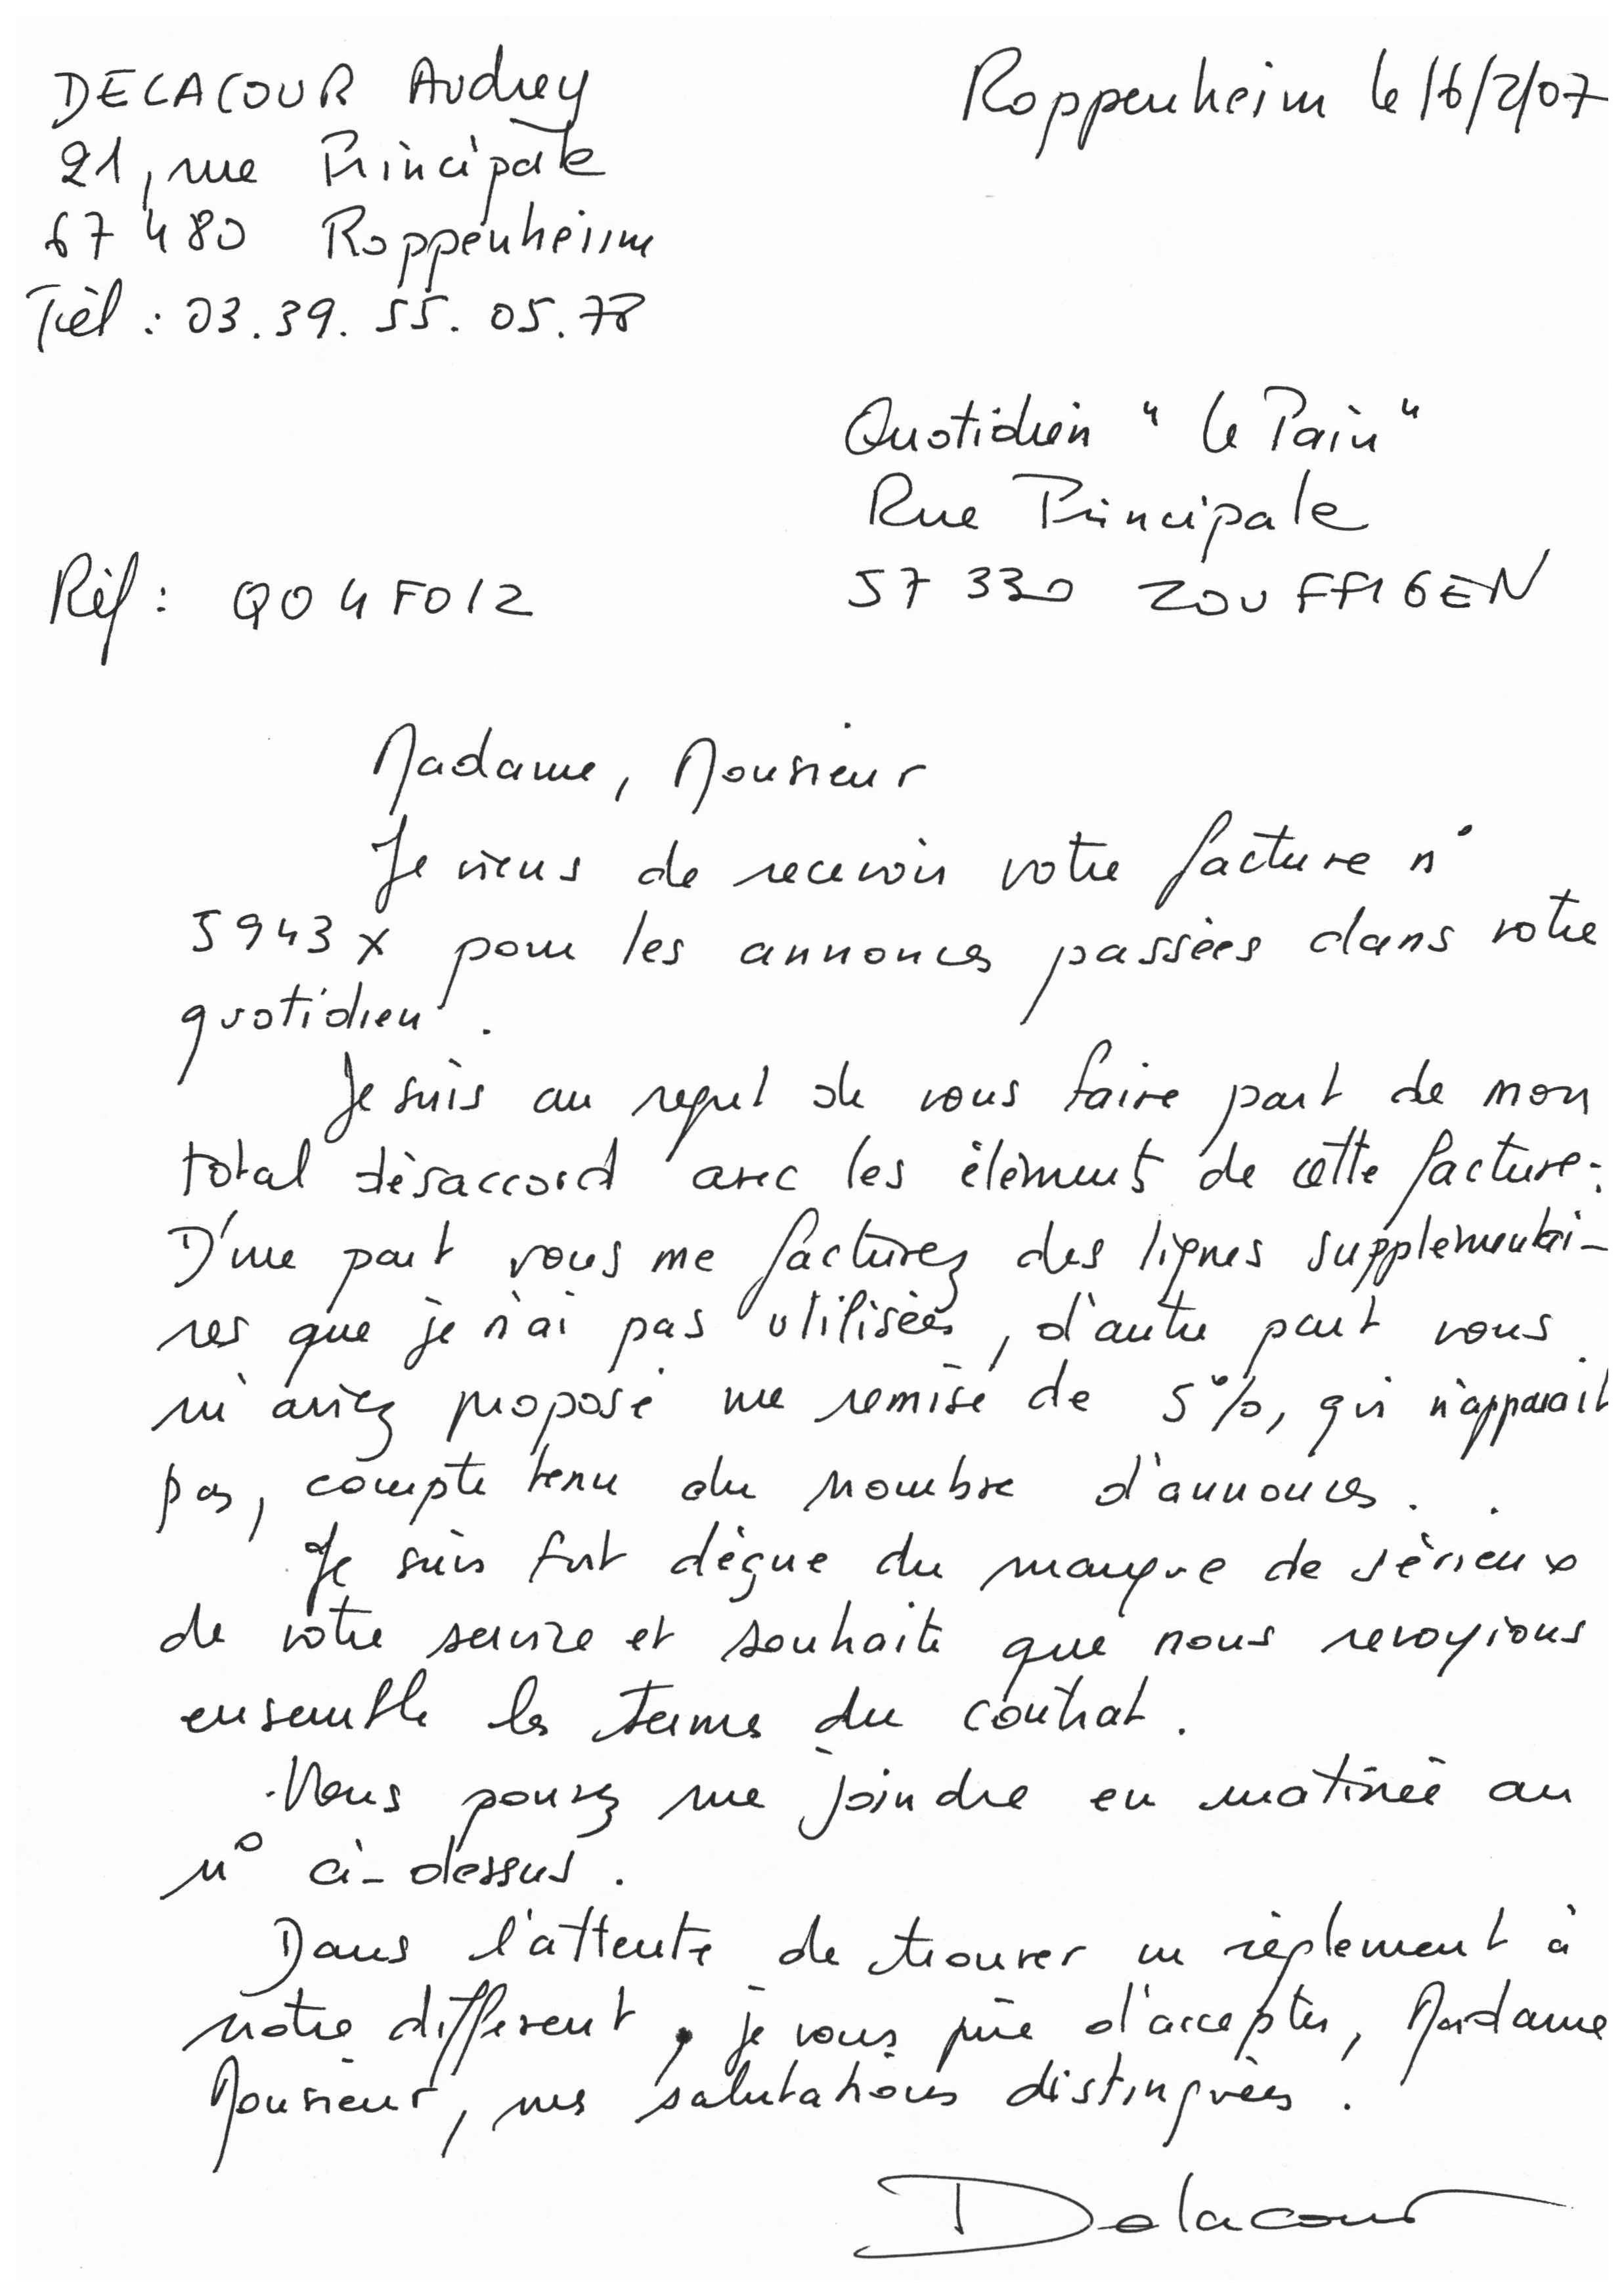 DELACOUR Audrey
Roppenheim le 16/2/07
21, rue Principale
67 480 Roppenheim
Tél : 03.39.55.05.78
Quotidien "le Pain"
Rue Principale
57 330 ZOUFFTGEN
Réf : QO4FO12
Madame, Monsieur
Je viens de recevoir votre facture n°
5943x pour les annonces passées dans votre
quotidien.
Je suis au regret de vous faire part de mon
total désaccord avec les éléments de cette facture :
D'une part vous me facturez des lignes supplémentai-
res que je n'ai pas utilisées, d'autre part vous
m'aviez proposé une remise de 5%, qui n'apparait
pas, compte tenu du nombre d'annonces.
Je suis fort déçue du manque de sérieux
de votre service et souhaite que nous revoyions
ensemble les termes du contrat.
Vous pouvez me joindre en matinée au
n° ci-dessus.
Dans l'attente de trouver un règlement à
notre différent, je vous prie d'accepter, Madame
Monsieur, mes salutations distinguées.
Delacour